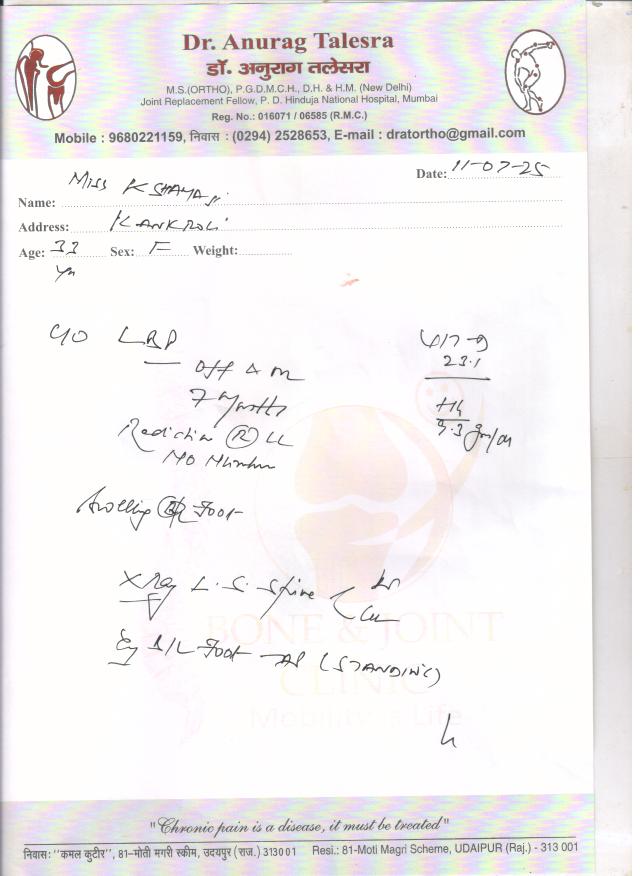 Dr. Anurag Talesra
डॉ. अनुराग तलेसरा
M.S.(ORTHO), P.G.D.M.C.H., D.H. & H.M. (New Delhi)
Joint Replacement Fellow, P. D. Hinduja National Hospital, Mumbai
Reg. No.: 016071 / 06585 (R.M.C.)
Mobile : 9680221159, निवास : (0294) 2528653, E-mail : dratortho@gmail.com
Date: 11-07-25
Name: Miss
Address: KANKROLI
Age: 33 Sex: F Weight:
yr
C/O LBP
off & on
7 Months
23.1
Hb
9.3 gm/dl
Radiation (R) LL
Swelling B/L Foot
X Ray L.S. Spine
B/L Foot - AP (STANDING)
BONE & JOINT
CLINIC
Mobility is Life
"Chronic pain is a disease, it must be treated"
निवास: "कमल कुटीर", 81-मोती मगरी स्कीम, उदयपुर (राज.) 313001 Resi.: 81-Moti Magri Scheme, UDAIPUR (Raj.) - 313 001